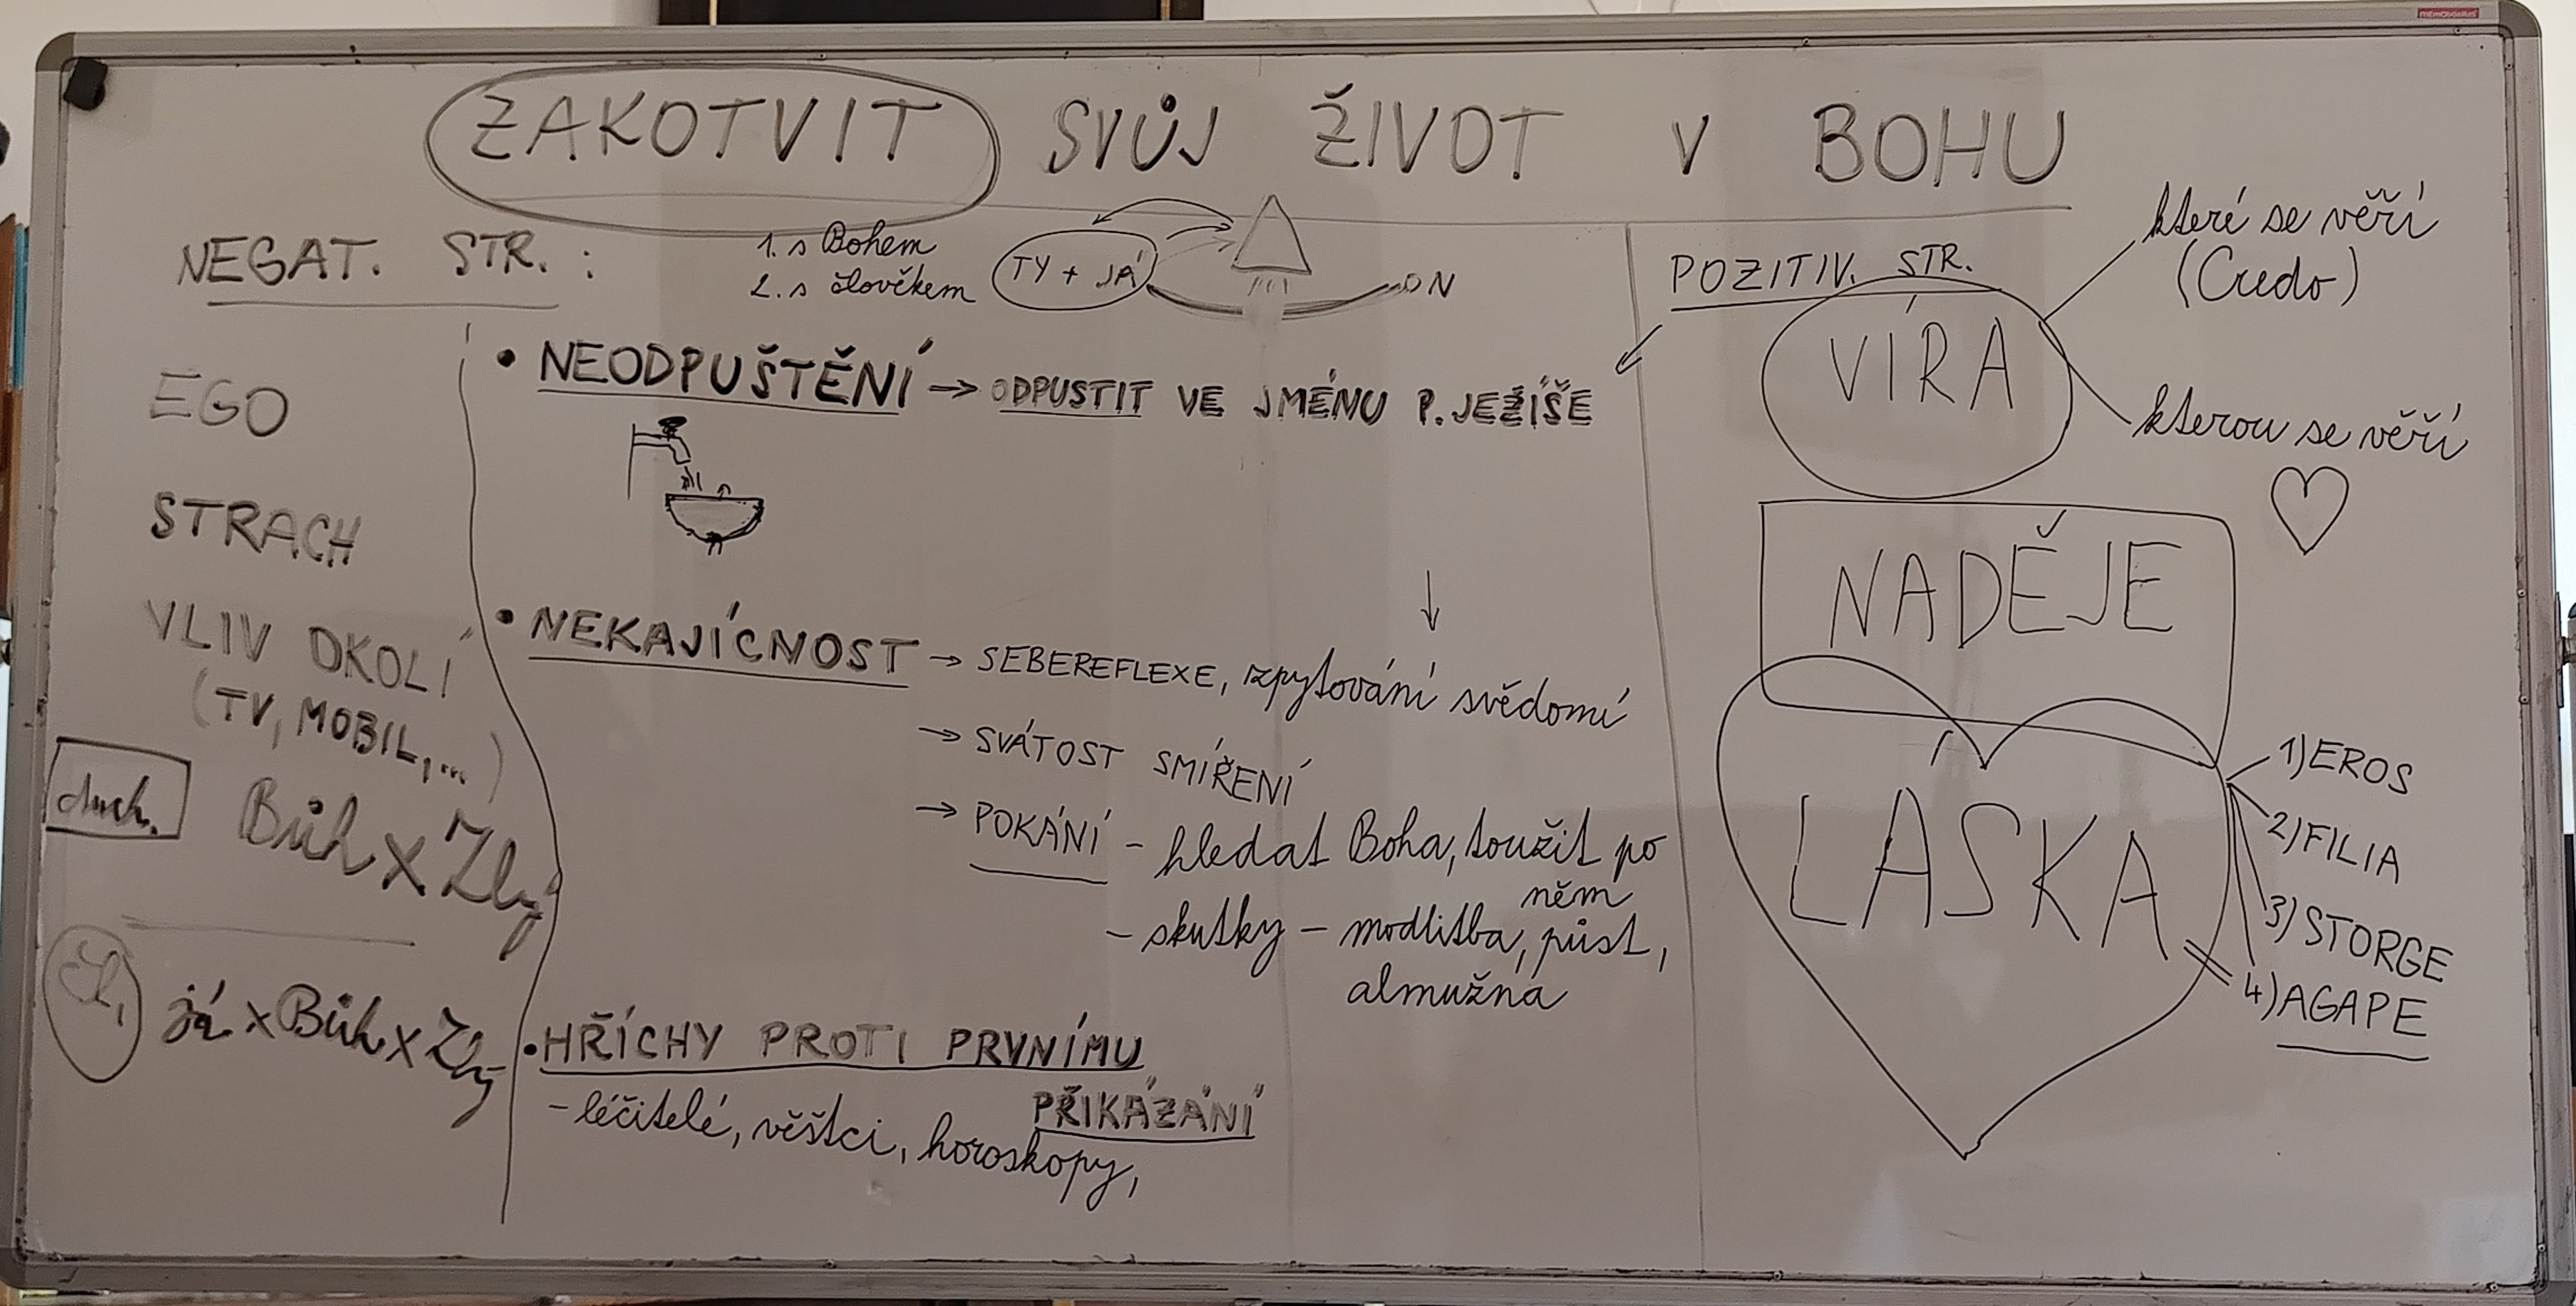 ZAKOTVIT SVŮJ ŽIVOT V BOHU
NEGAT. STR. :
EGO
STRACH
VLIV OKOLÍ
(TV, MOBIL,...)
duch. Bůh x Zlý
já x Bůh x Zlý
1. s Bohem
2. s člověkem
TY + JÁ
ON
• NEODPUŠTĚNÍ → ODPUSTIT VE JMÉNU P. JEŽÍŠE
• NEKAJÍCNOST → SEBEREFLEXE, zpytování svědomí
→ SVÁTOST SMÍŘENÍ
→ POKÁNÍ - hledat Boha, toužit po
něm
- skutky - modlitba, půst,
almužna
• HŘÍCHY PROTI PRVNÍMU
PŘIKÁZÁNÍ
- léčitelé, věštci, horoskopy,
POZITIV. STR.
VÍRA
které se věří
(Credo)
kterou se věří
NADĚJE
LÁSKA
1) EROS
2) FILIA
3) STORGE
4) AGAPE